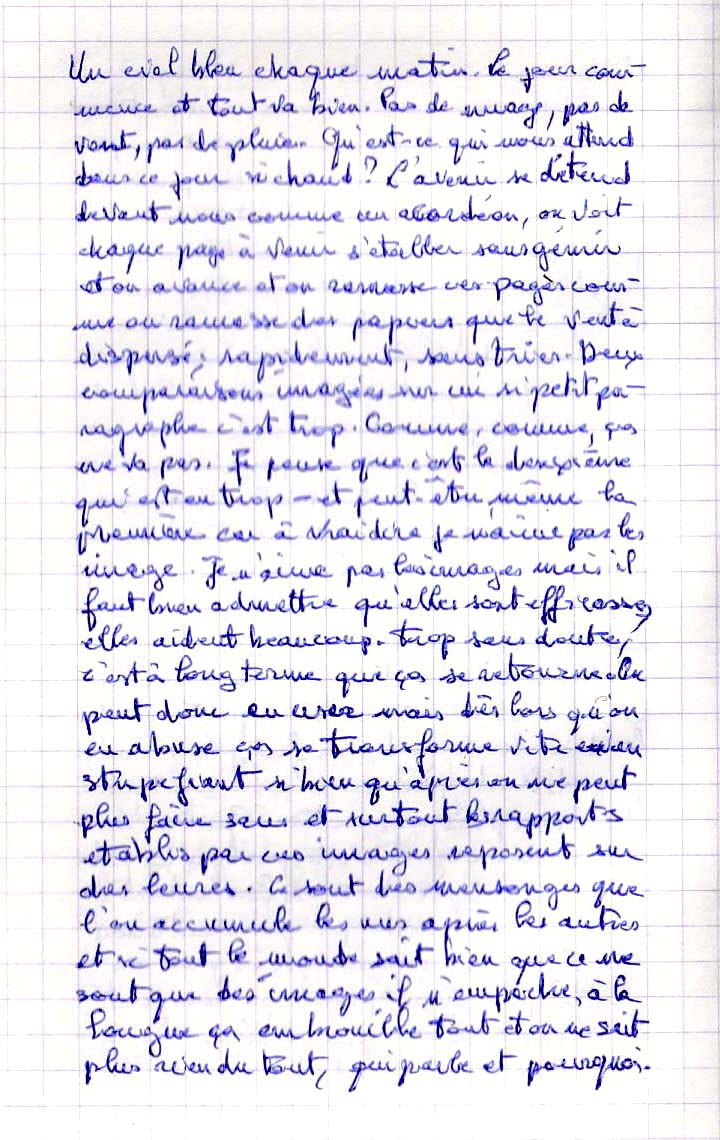 Un ciel bleu chaque matin. Le jour com-
mence et tout va bien. Pas de nuage, pas de
vent, pas de pluie. Qu'est-ce qui nous attend
dans ce jour si chaud ? L'avenir se détend
devant nous comme un acordéon, on voit
chaque page à venir s'étaller sans gémir
et on avance et on ramasse ces pages com-
me on ramasse des papiers que le vent à
dispersé, rapidement, sans trier. Deux
comparaisons imagées sur un si petit pa-
ragraphe c'est trop. Comme, comme, ça
ne va pas. Je pense que c'est la deuxième
qui est en trop – et peut-être même la
première car à vrai dire je n'aime pas les
image. Je n'aime pas les images mais il
faut bien admettre qu'elles sont efficasses,
elles aident beaucoup. Trop sans doute,
c'est à long terme que ça se retourne. On
peut donc en user mais dès lors qu'on
en abuse ça se transforme vite en
stupefiant si bien qu'après on ne peut
plus faire sans et surtout les rapports
etablis par ces images reposent sur
des leures. Ce sont des mensonges que
l'on accumule les uns après les autres
et si tout le monde sait bien que ce ne
sont que des images il n'empèche, à la
longue ça embrouille tout et on ne sait
plus rien du tout, qui parle et pourquoi.